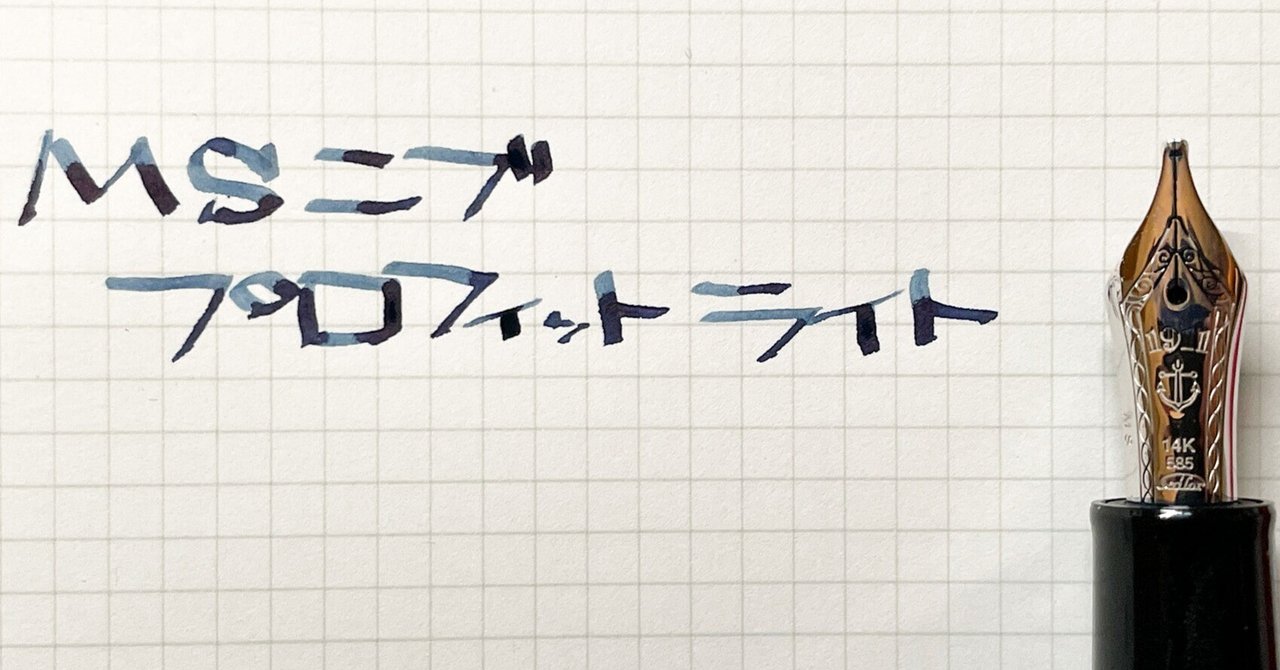 MSニブ
プロフィットライト
19_11
MS
14K
585
Sailor